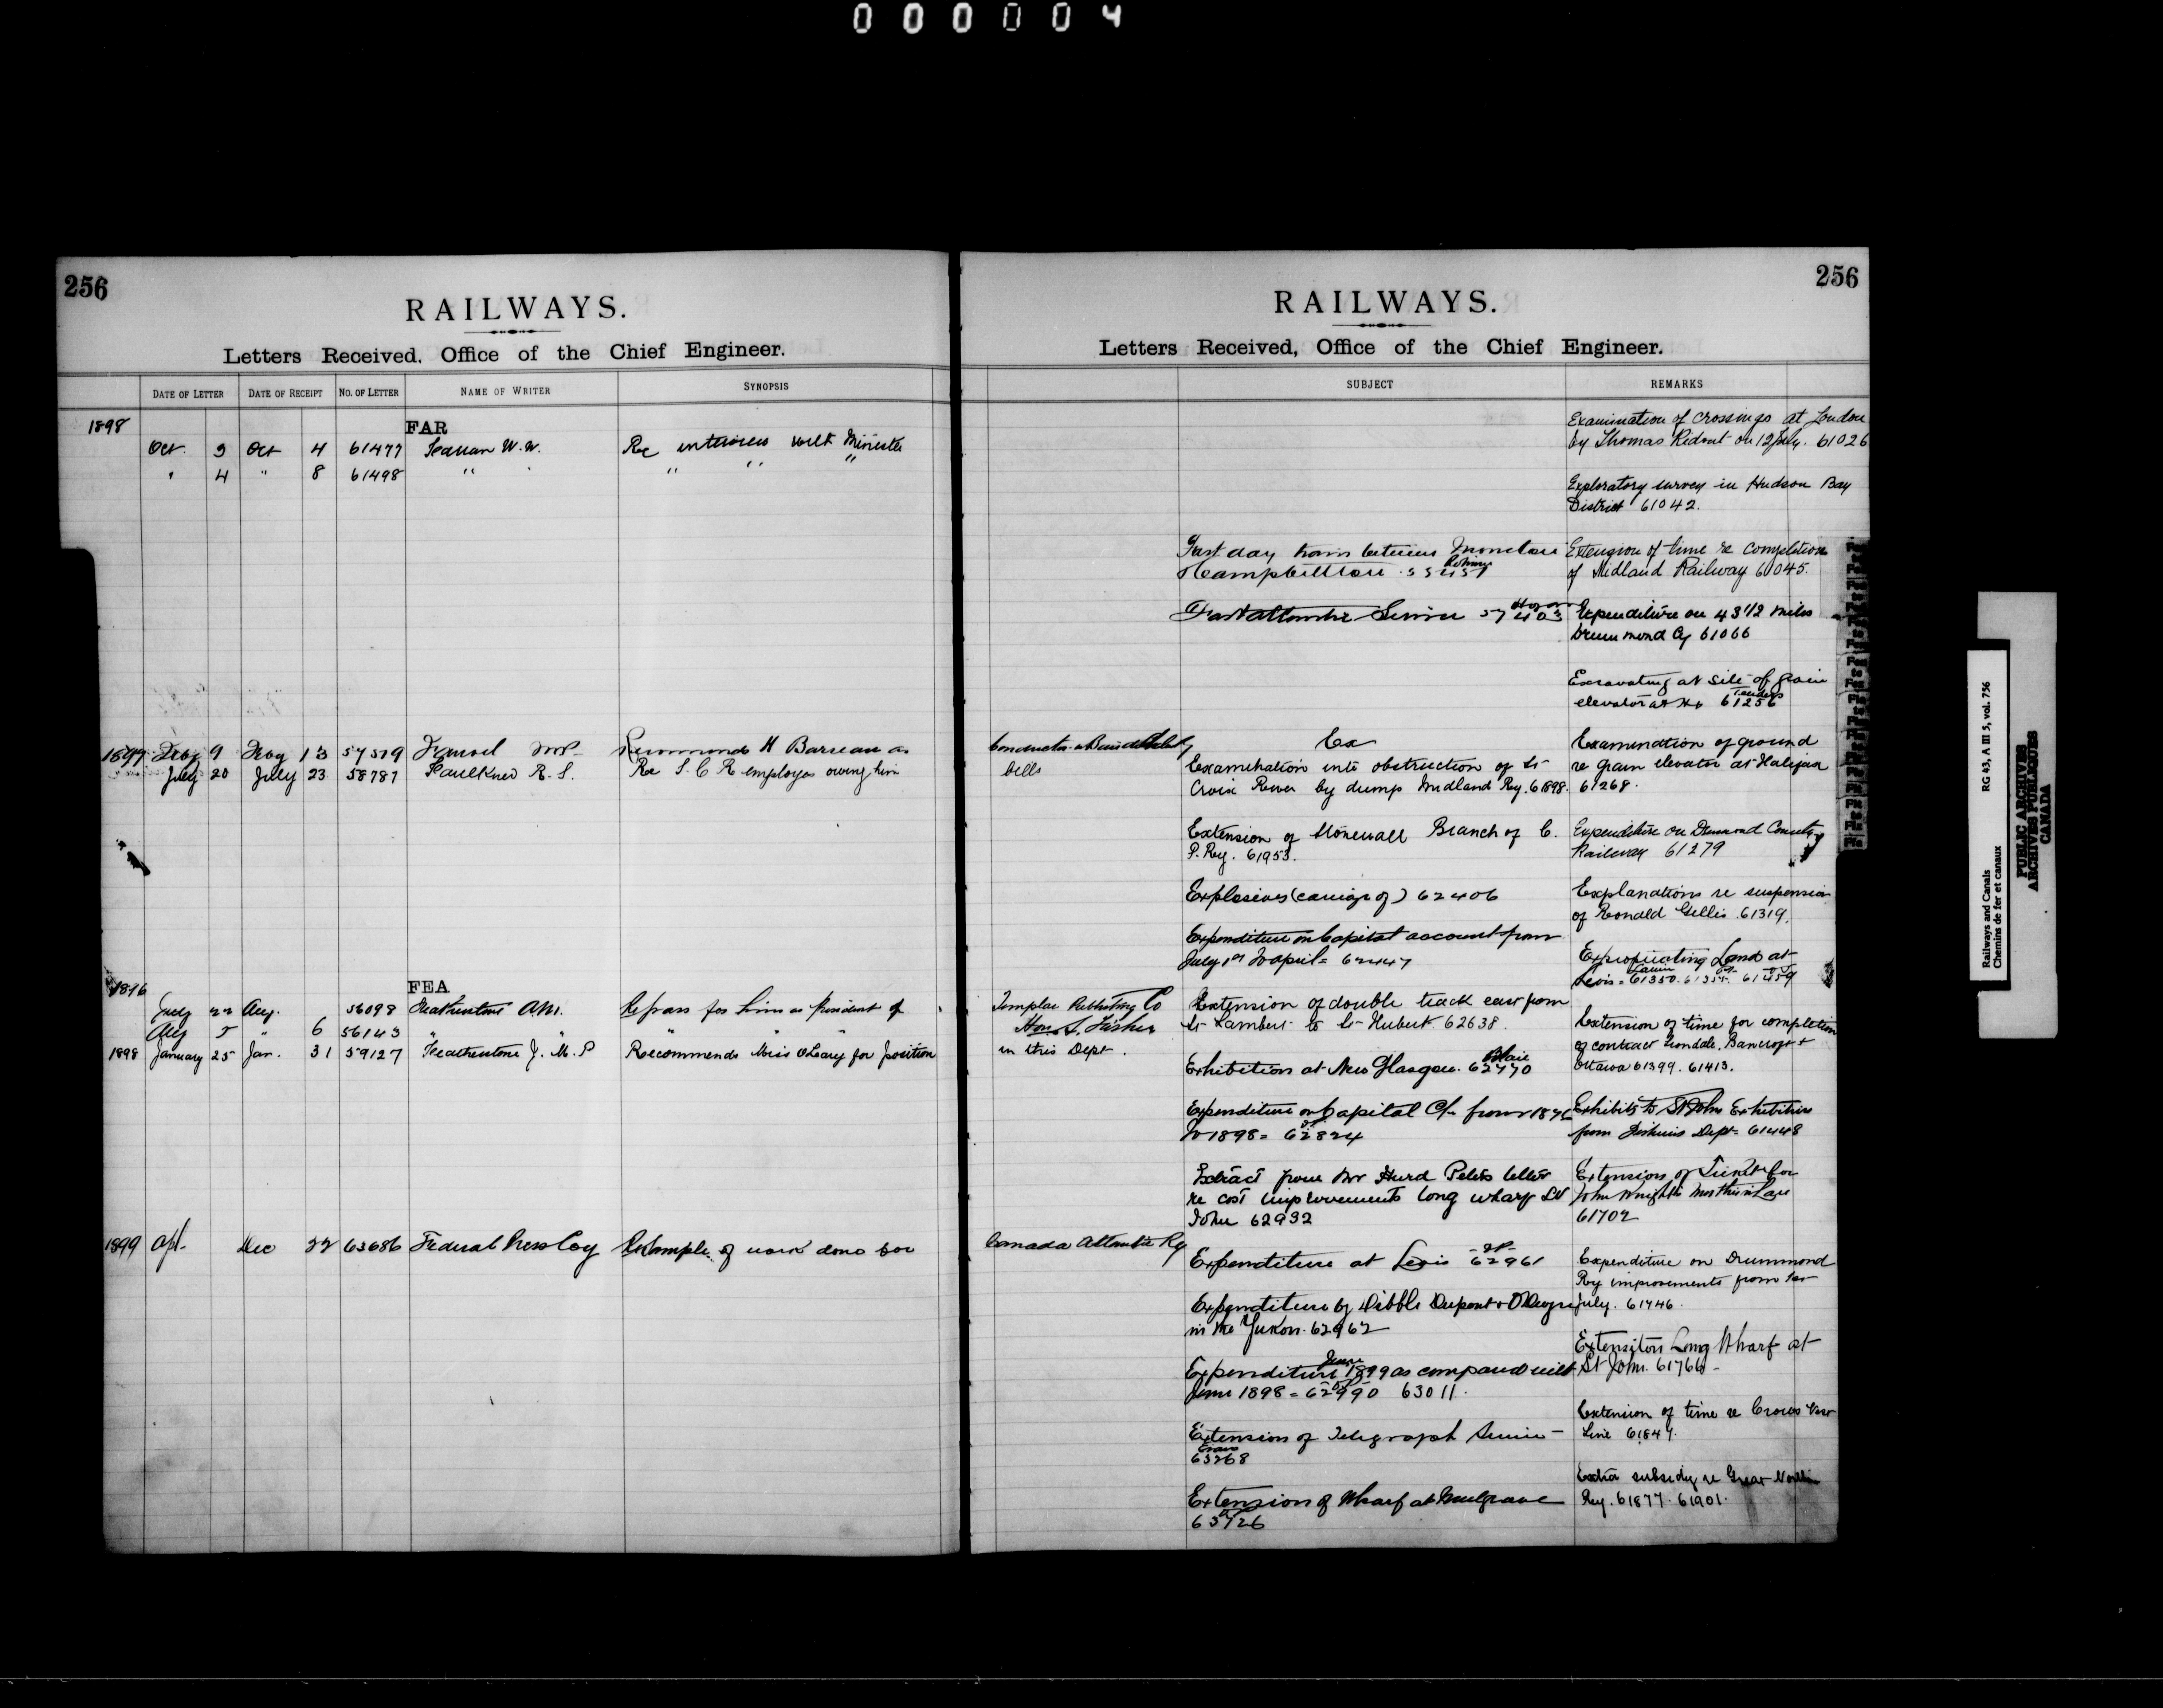 000004
256
RAILWAYS.
Letters Received, Office of the Chief Engineer.
DATE OF LETTER DATE OF RECEIPT NO. OF LETTER NAME OF WRITER SYNOPSIS
1898 FAR
Oct. 3 Oct 4 61477 W. W. Re interview with Minister
" 4 " 8 61498 " " " " "
1897 Feby 9 Feby 13 57579 MP Recommends H Barreau as
July 20 July 23 58787 Faulkner R. S. Re I. C R employes owing him
1896 FEA
July 22 Aug. 56098 Featherstone A.M. Re pass for him as President of
Aug 5 " 6 56143 " " " "
1898 January 25 Jan. 31 59127 Featherstone J. M. P Recommends Miss O'Leary for position
1899 Dec 22 63686 Federal Press Coy Re Sample of work done for
256
RAILWAYS.
Letters Received, Office of the Chief Engineer.
SUBJECT REMARKS
Conductor
bills
Templar Publishing Co
Hon. S. Fisher
in this Dept.
Canada Atlantic Ry
Fast day train between Moncton
Campbellton
Fast Atlantic Service
Ex
Examination into obstruction of St
Croix River by dump Midland Ry. 61898.
Extension of Stonewall Branch of C.
P. Ry. 61953.
Explosives (carriage of) 62406
Expenditure on Capital account from
July 1st to April = 62447
Extension of double track east from
St Lambert to St Hubert 62638.
Blair
Exhibition at New Glasgow. 62770
Expenditure on Capital from 1876
to 1898 = 62824
Extract from Mr Hurd Peters letter
re cost improvements long wharf St
John 62932
Expenditure at Levis 62961
Expenditure by Dibble Dupont &
in the Yukon. 62962
June
Expenditure 1899 as compared with
June 1898 = 62990 63011.
Extension of Telegraph Service -
Evans
63268
Extension of Wharf at Mulgrave
63726
Examination of crossings at London
by Thomas Ridout on 12 July. 61026
Exploratory survey in Hudson Bay
District 61042.
Extension of time re completion
of Midland Railway 61045.
Expenditure on 43 1/2 miles
Drummond Cy 61066
Excavating at site of grain
Tenders
elevator at Hx 61256
Examination of ground
re grain elevator at Halifax
61268.
Expenditure on Drummond County
Railway 61279
Explanations re suspension
of Ronald Gillis 61319.
Expropriating Land at
Levis = 61350. 61459
Extension of time for completion
of contract Irondale, Bancroft &
Ottawa 61399. 61413.
Exhibits to St John Exhibition
from Fisheries Dept = 61448
Extension of Ticket for
John Wright
61702
Expenditure on Drummond
Ry improvements from 1st
July. 61746.
Extension Long Wharf at
St John. 61766 -
Extension of time re Crows Nest
Line 61847.
Extra subsidy re Great Northern
Ry. 61877. 61901.
RG 43, A III 5, vol. 756
Railways and Canals
Chemins de fer et canaux
PUBLIC ARCHIVES
ARCHIVES PUBLIQUES
CANADA